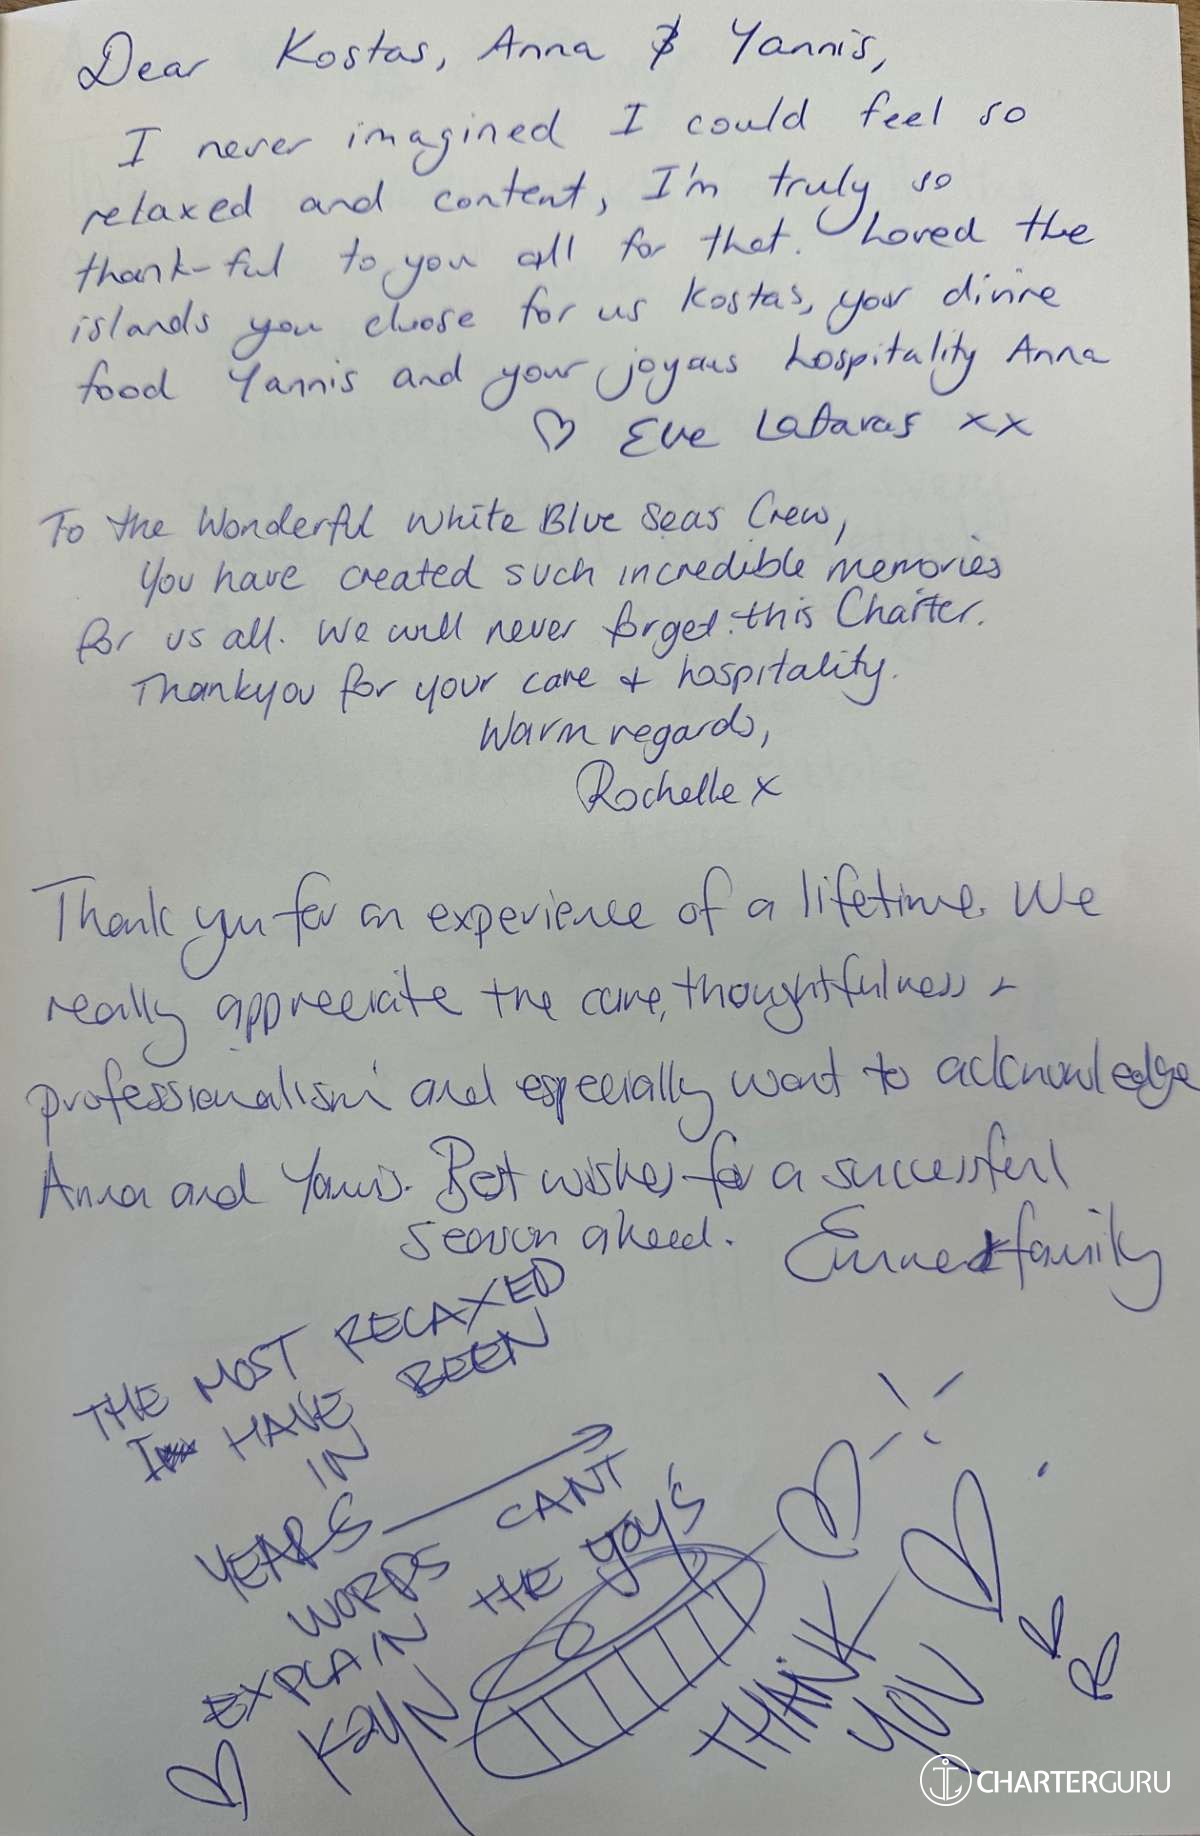 Dear Kostas, Anna & Yannis,
I never imagined I could feel so
relaxed and content, I'm truly so
thank-ful to you all for that. Loved the
islands you choose for us Kostas, your divine
food Yannis and your joyous hospitality Anna
♡ Eve xx
To the Wonderful White Blue Seas Crew,
You have created such incredible memories
for us all. We will never forget this Charter.
Thankyou for your care + hospitality.
Warm regards,
Rochelle x
Thank you for an experience of a lifetime. We
really appreciate the care, thoughtfulness +
professionalism and especially want to acknowledge
Anna and Yannis. Best wishes for a successful
season ahead.
& family
THE MOST RELAXED
I HAVE BEEN
IN
YEARS
WORDS CANT
EXPLAIN THE YOY'S
♡ KayN
THANK
YOU
CHARTERGURU